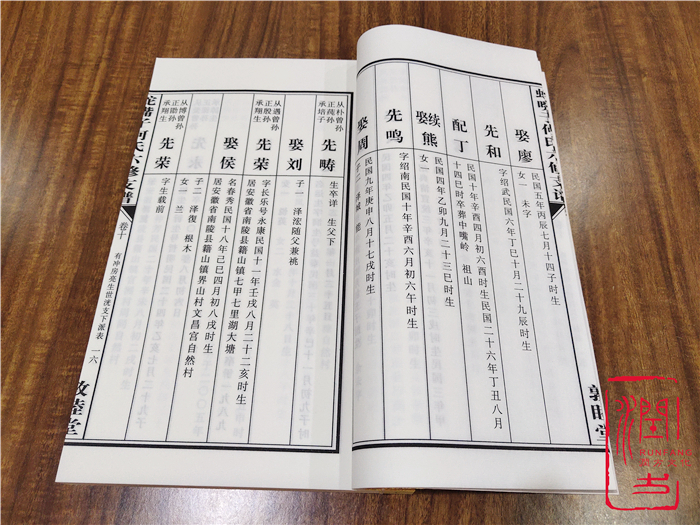 娶廖
民国五年丙辰七月十四子时生
女一 未字
先和
字绍武民国六年丁巳十月二十九辰时生
配丁
民国十年辛酉四月初六酉时生民国二十六年丁丑八月
十四巳时卒葬中嘴岭 祖山
续娶熊
民国四年乙卯九月二十三巳时生
女一
先鸣
字绍南民国十年辛酉六月初六午时生
娶周
民国九年庚申八月十七戌时生
从朴曾孙
正莼孙
承培子
先畴
生卒详 生父下
娶刘
子一 泽浤随父兼祧
从遇曾孙
正殷孙
承翔生
先荣
字长乐号永康民国十一年壬戌八月二十二亥时生
居安徽省南陵县籍山镇七甲七里湖大塘
娶侯
名春秀民国十八年己巳四月初八戌时生
居安徽省南陵县籍山镇界山村文昌宫自然村
子二 泽復 根木
女一 兰
从博曾孙
正勋孙
承翔生
先荣
字生载前
六修支谱
卷十 有冲房亮生世洸支下派表 一六
敦睦堂